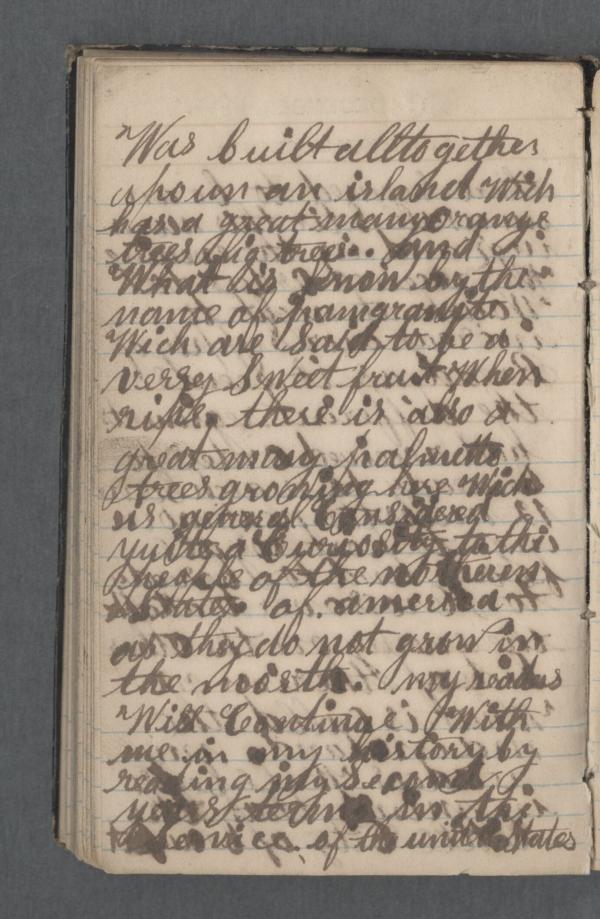 Was built alltogether
apoun an island Wich
has a great many orange
trees fig trees. and
What is know by the
name of pamgranits
Wich are Said to be a
verry Sweet fruit When
ripe. there is also a
great many palmetto
trees growing here Wich
is general Considered
quite a Curiosity to the
people of the northeren
states of america
as they do not grow in
the north. my readers
Will Continue With
me in my history by
reading my Second
years term in the
Service. of the united States